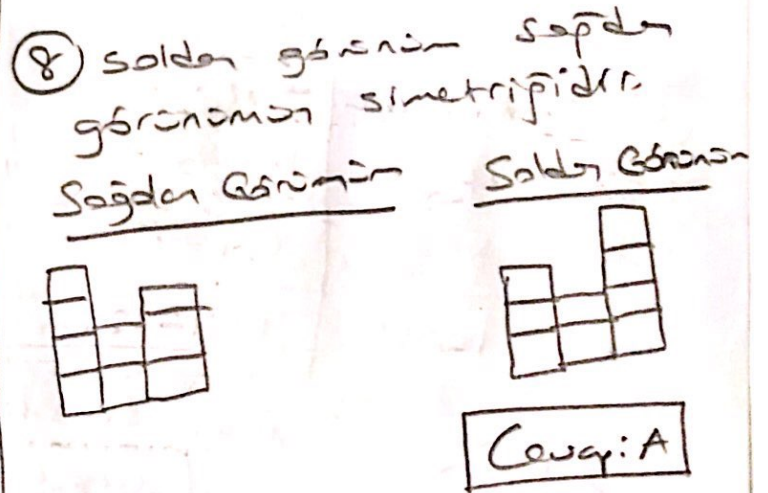 8 Soldan görünüm sağdan
görünümün simetriğidir.
Sağdan Görünüm
Soldan Görünüm
Cevap: A